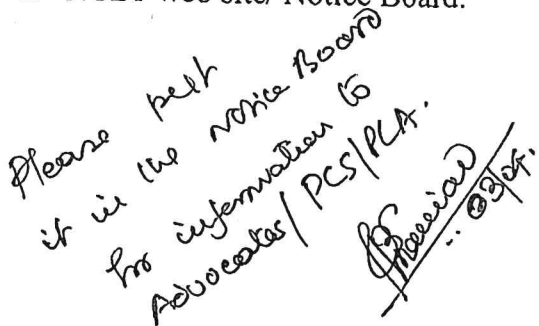 web site/ Notice Board.
Please put
it in the Notice Board
for information to
Advocates/ PCS/PCA.
03/04.